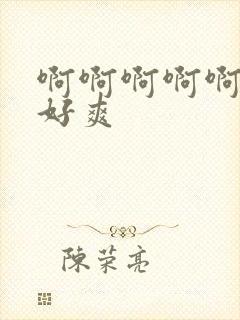 啊啊啊啊啊
好爽
陈荣亮